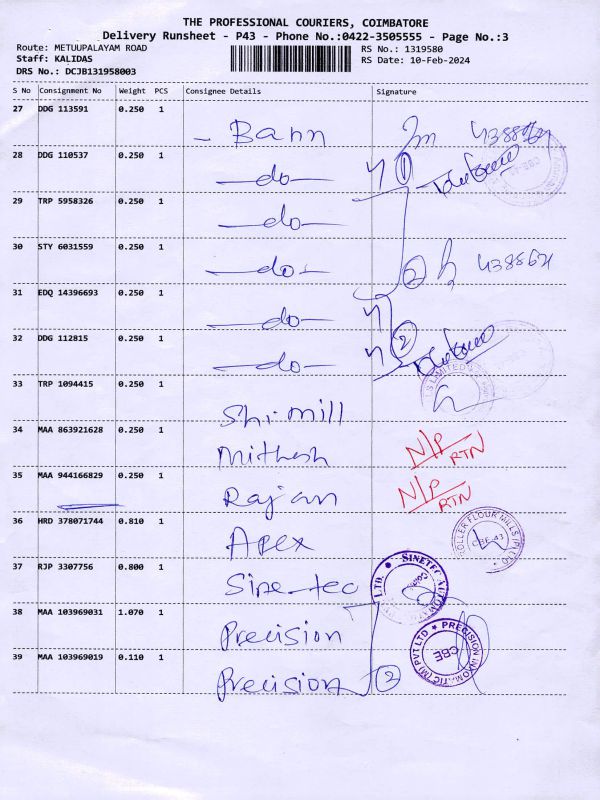 THE PROFESSIONAL COURIERS, COIMBATORE
Delivery Runsheet - P43 - Phone No.:0422-3505555 - Page No.:3
Route: METUUPALAYAM ROAD
RS No.: 1319580
Staff: KALIDAS
RS Date: 10-Feb-2024
DRS No.: DCJB131958003
S No Consignment No Weight PCS Consignee Details Signature
27 DDG 113591 0.250 1
28 DDG 110537 0.250 1 —do—
29 TRP 5958326 0.250 1 —do—
30 STY 6031559 0.250 1 —do—
31 EDQ 14396693 0.250 1 —do—
32 DDG 112815 0.250 1 —do—
33 TRP 1094415 0.250 1 Shri Mill
34 MAA 863921628 0.250 1 Mithesh N/P RTN
35 MAA 944166829 0.250 1 Rajan N/P RTN
36 HRD 378071744 0.810 1 Apex ROLLER FLOUR MILLS (P) CBE-43
37 RJP 3307756 0.800 1 Sine-tec SINETEC AUTOMA LTD.
38 MAA 103969031 1.070 1 Precision
39 MAA 103969019 0.110 1 Precision 2 PRECISION INXOMATIC (M) PVT LTD CBE